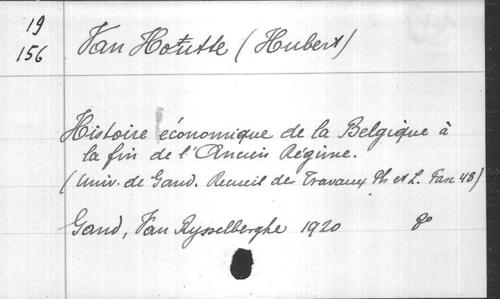 19
156
Van Houtte (Hubert)
Histoire économique de la Belgique à
la fin de l'Ancien Régime.
(Univ. de Gand. Recueil des Travaux Ph et L. Fasc 48)
Gand, Van Rysselberghe 1920 8°